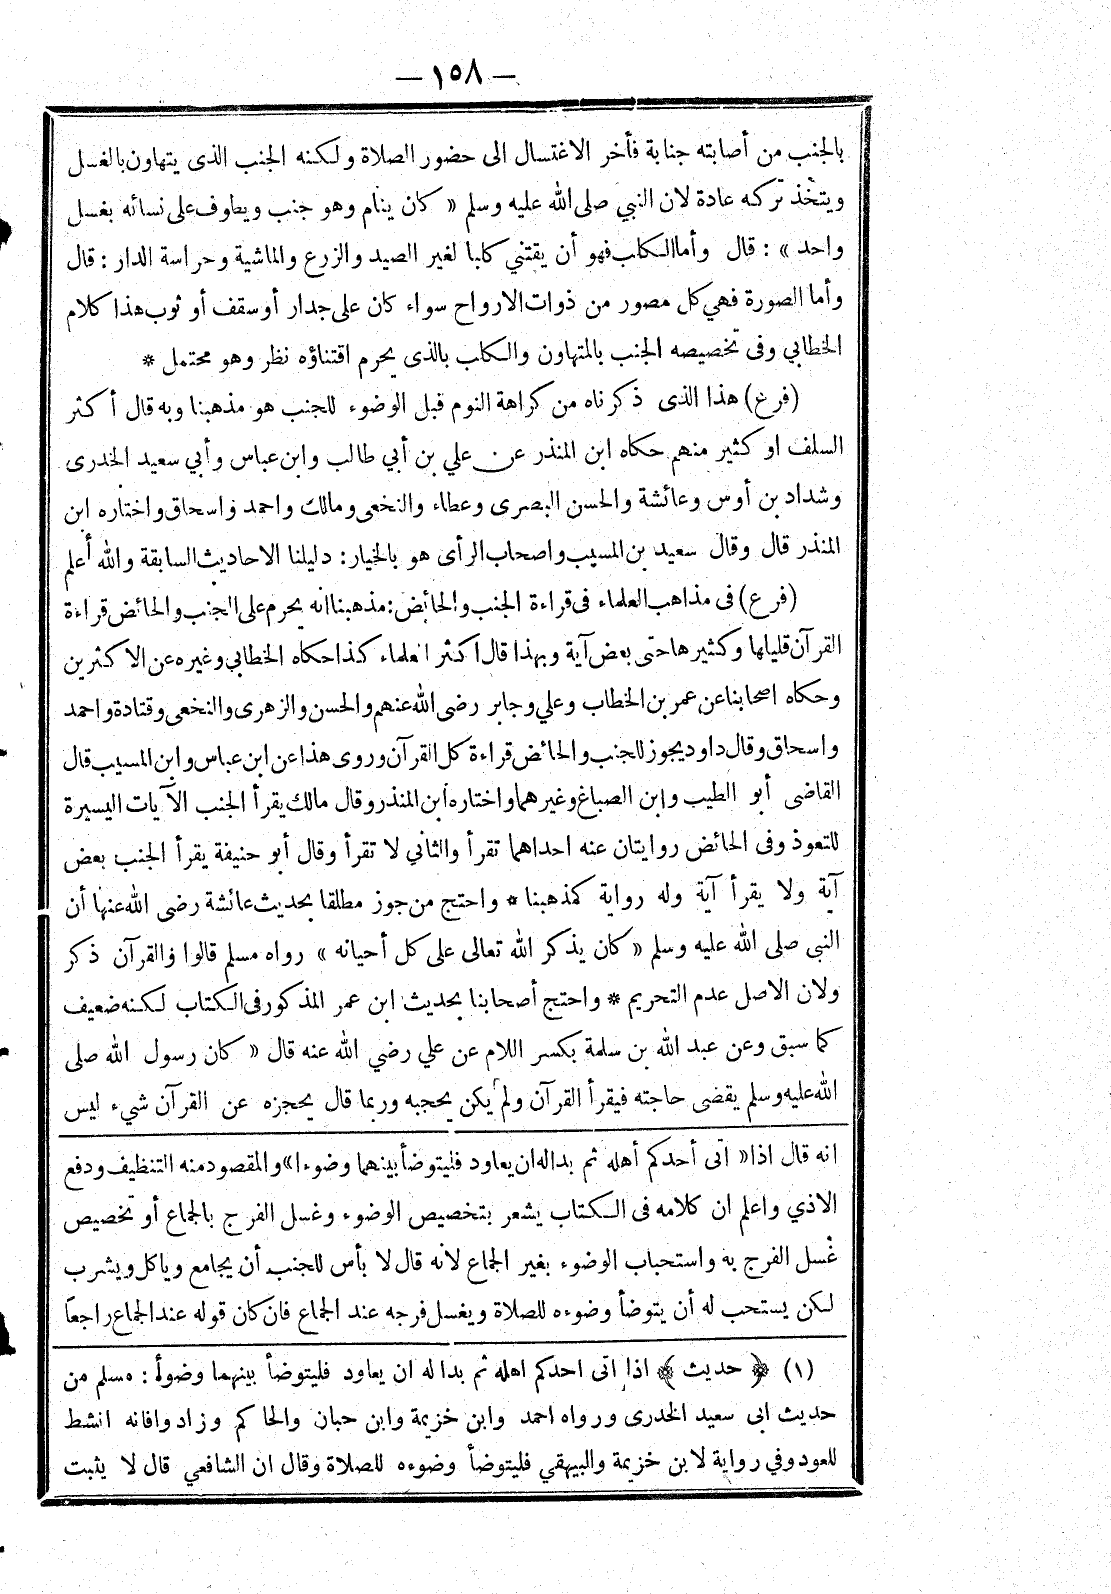 — ١٥٨ —
بالجنب من أصابته جنابة فأخر الاغتسال الى حضور الصلاة ولكنه الجنب الذى يتهاون بالغسل
ويتخذ تركه عادة لان النبي صلى الله عليه وسلم « كان ينام وهو جنب ويطوف على نسائه بغسل
واحد » : قال وأما الكلب فهو أن يقتني كلبا لغير الصيد والزرع والماشية وحراسة الدار : قال
وأما الصورة فهي كل مصور من ذوات الارواح سواء كان على جدار أو سقف أو ثوب هذا كلام
الخطابي وفى تخصيصه الجنب بالمتهاون والكلب بالذى يحرم اقتناؤه نظر وهو محتمل *
(فرع) هذا الذى ذكرناه من كراهة النوم قبل الوضوء للجنب هو مذهبنا وبه قال أكثر
السلف او كثير منهم حكاه ابن المنذر عن علي بن أبي طالب وابن عباس وأبي سعيد الخدرى
وشداد بن أوس وعائشة والحسن البصرى وعطاء والنخعى ومالك واحمد واسحاق واختاره ابن
المنذر قال وقال سعيد بن المسيب واصحاب الرأى هو بالخيار : دليلنا الاحاديث السابقة والله أعلم
(فرع) فى مذاهب العلماء فى قراءة الجنب والحائض : مذهبنا انه يحرم على الجنب والحائض قراءة
القرآن قليلها وكثيرها حتى بعض آية وبهذا قال اكثر العلماء كذا حكاه الخطابي وغيره عن الاكثرين
وحكاه اصحابنا عن عمر بن الخطاب وعلي وجابر رضى الله عنهم والحسن والزهرى والنخعى وقتادة واحمد
واسحاق وقال داود يجوز للجنب والحائض قراءة كل القرآن وروى هذا عن ابن عباس وابن المسيب قال
القاضى أبو الطيب وابن الصباغ وغيرهما واختاره ابن المنذر وقال مالك يقرأ الجنب الآيات اليسيرة
للتعوذ وفى الحائض روايتان عنه احداهما تقرأ والثاني لا تقرأ وقال أبو حنيفة يقرأ الجنب بعض
آية ولا يقرأ آية وله رواية كمذهبنا * واحتج من جوز مطلقا بحديث عائشة رضى الله عنها أن
النبى صلى الله عليه وسلم « كان يذكر الله تعالى على كل أحيانه » رواه مسلم قالوا والقرآن ذكر
ولان الاصل عدم التحريم * واحتج أصحابنا بحديث ابن عمر المذكور فى الكتاب لكنه ضعيف
كما سبق وعن عبد الله بن سلمة بكسر اللام عن علي رضي الله عنه قال « كان رسول الله صلى
الله عليه وسلم يقضى حاجته فيقرأ القرآن ولم يكن يحجبه وربما قال يحجزه عن القرآن شيء ليس
انه قال اذا « اتى أحدكم أهله ثم بدا له ان يعاود فليتوضأ بينهما وضوءا » والمقصود منه التنظيف ودفع
الاذي واعلم ان كلامه فى الكتاب يشعر بتخصيص الوضوء وغسل الفرج بالجماع أو تخصيص
غسل الفرج به واستحباب الوضوء بغير الجماع لانه قال لا بأس للجنب أن يجامع وياكل ويشرب
لكن يستحب له أن يتوضأ وضوءه للصلاة ويغسل فرجه عند الجماع فان كان قوله عند الجماع راجعاً
(١) ﴿ حديث ﴾ اذا اتى احدكم اهله ثم بدا له ان يعاود فليتوضأ بينهما وضوأ : مسلم من
حديث ابى سعيد الخدرى ورواه احمد وابن خزيمة وابن حبان والحاكم وزادوا فانه انشط
للعود وفي رواية لابن خزيمة والبيهقي فليتوضأ وضوءه للصلاة وقال ان الشافعي قال لا يثبت